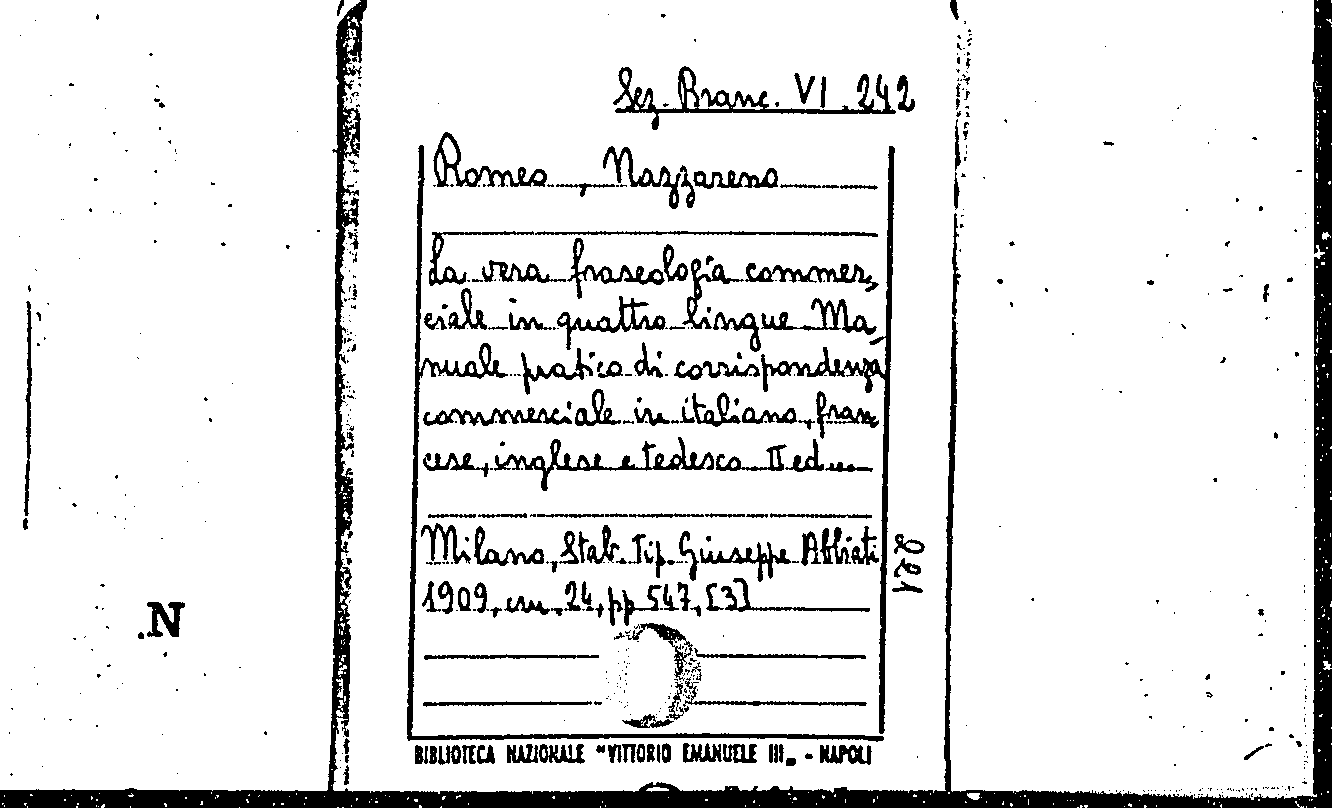 Sez. Branc. VI. 242
Romeo, Nazzareno
La vera fraseologia commer,
ciale in quattro lingue. Ma,
nuale pratico di corrispondenza
commerciale in italiano, fran
cese, inglese e tedesco. II ed....
Milano, Stab. Tip. Giuseppe Abbiati
1909, cm. 24, pp 547, [3]
.N
BIBLIOTECA NAZIONALE "VITTORIO EMANUELE III„ - NAPOLI